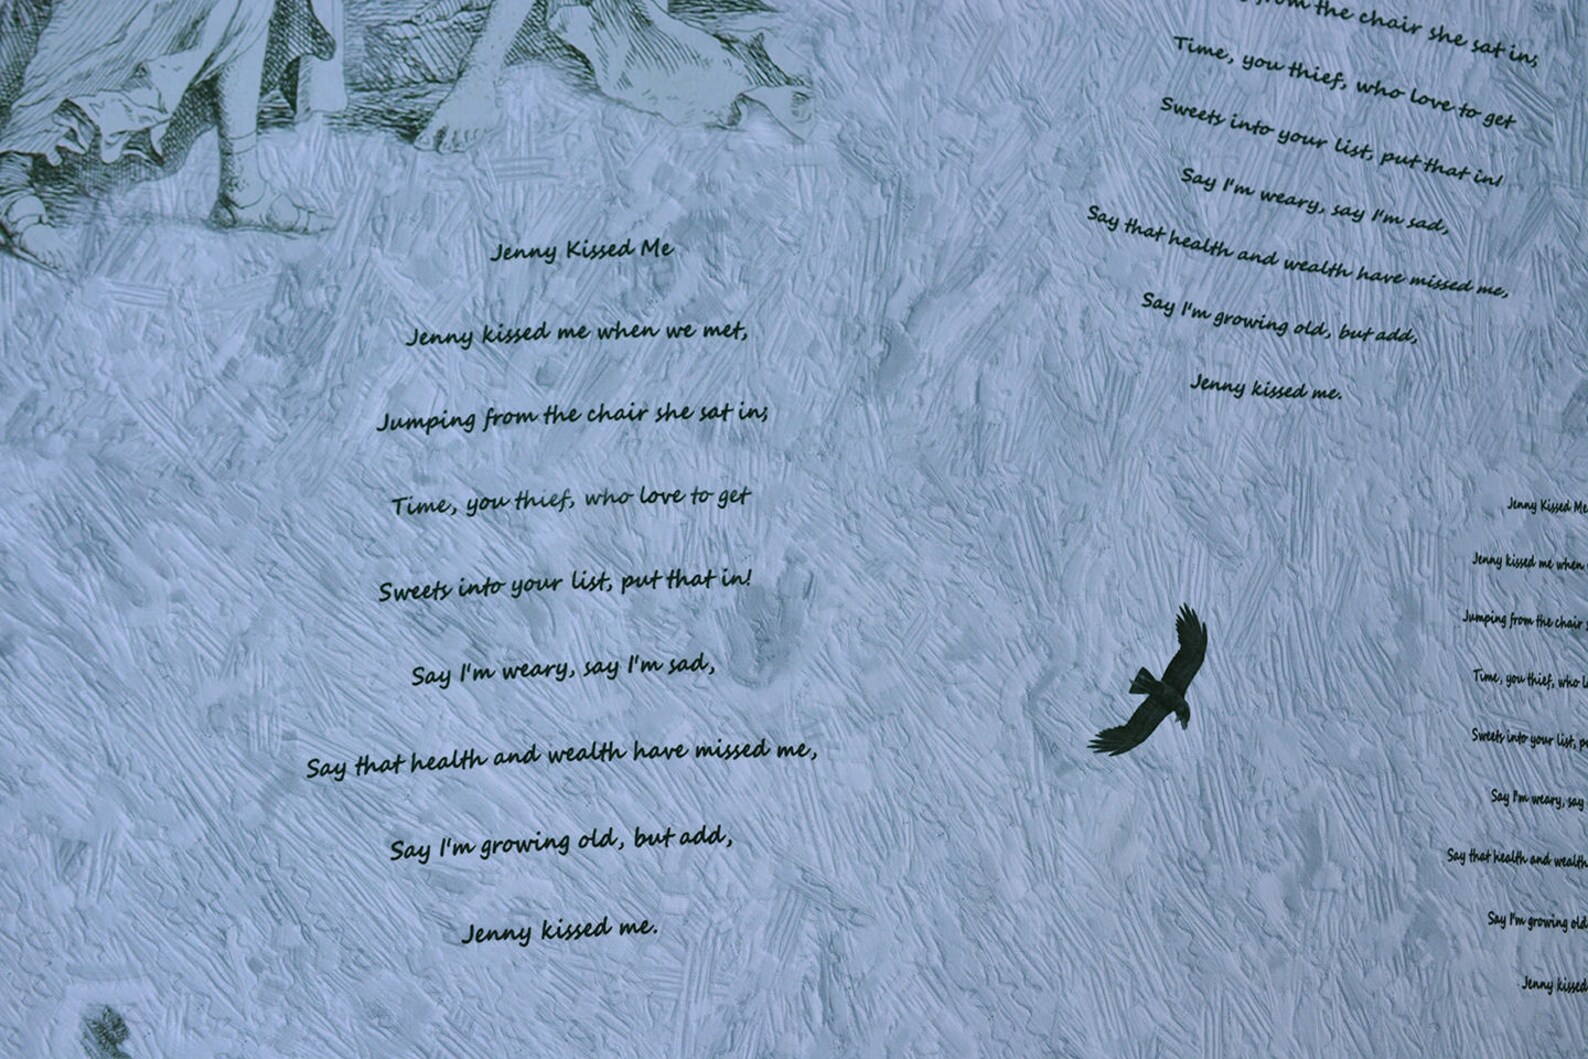 Jenny Kissed Me
Jenny kissed me when we met,
Jumping from the chair she sat in;
Time, you thief, who love to get
Sweets into your list, put that in!
Say I'm weary, say I'm sad,
Say that health and wealth have missed me,
Say I'm growing old, but add,
Jenny kissed me.
from the chair she sat in;
Time, you thief, who love to get
Sweets into your list, put that in!
Say I'm weary, say I'm sad,
Say that health and wealth have missed me,
Say I'm growing old, but add,
Jenny kissed me.
Jenny Kissed Me
Jenny kissed me when
Jumping from the chair
Time, you thief, who
Sweets into your list,
Say I'm weary, say
Say that health and wealth
Say I'm growing old
Jenny kissed